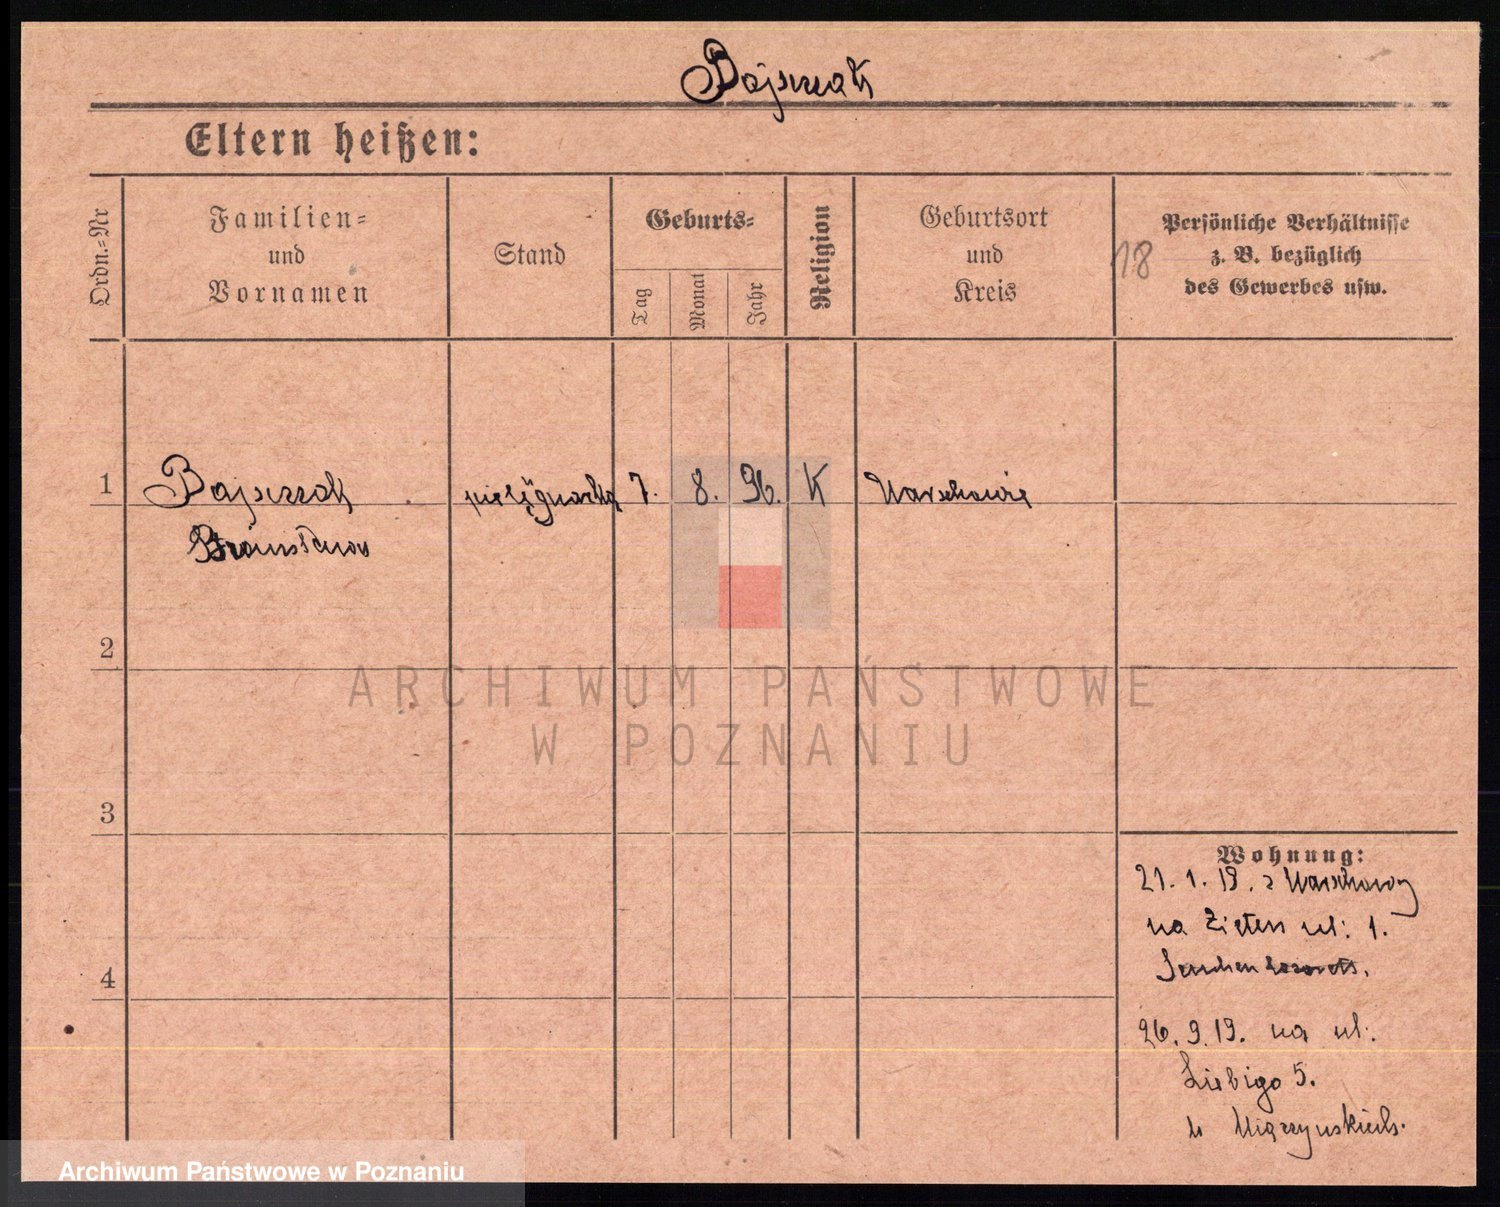 Bajserak
Eltern heißen:
Ordn.-Nr
Familien-
und
Vornamen
Stand
Geburts-
Tag
Monat
Jahr
Religion
Geburtsort
und
Kreis
18
Persönliche Verhältnisse
z. B. bezüglich
des Gewerbes usw.
1 pielęgnarka 7. 8. 96. K Warschowie
2
ARCHIWUM PAŃSTWOWE
W POZNANIU
3
4
Wohnung:
21. 1. 19. z Warschowy
na Zieten ul: 1.
26. 9. 19. na ul:
Liebigo 5.
u
Archiwum Państwowe w Poznaniu